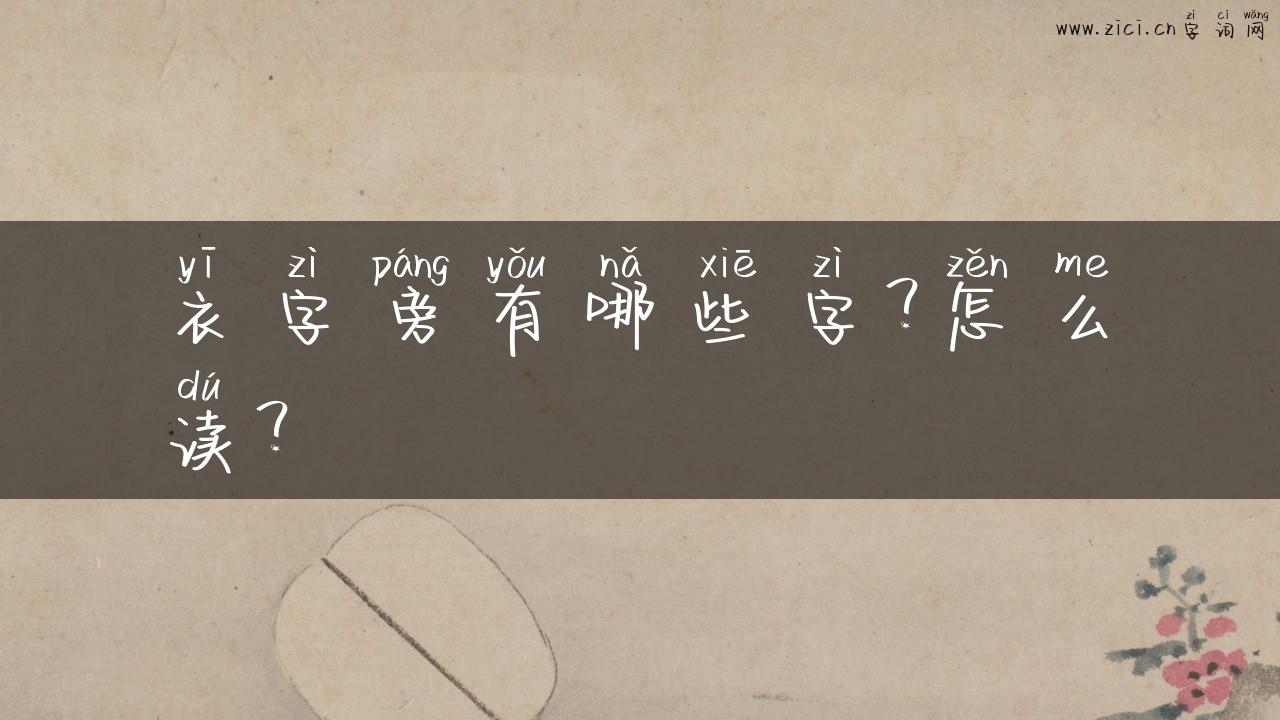 zì cí wǎng
www.zici.cn字词网
yī zì páng yǒu nǎ xiē zì zěn me
衣字旁有哪些字?怎么
dú
读?